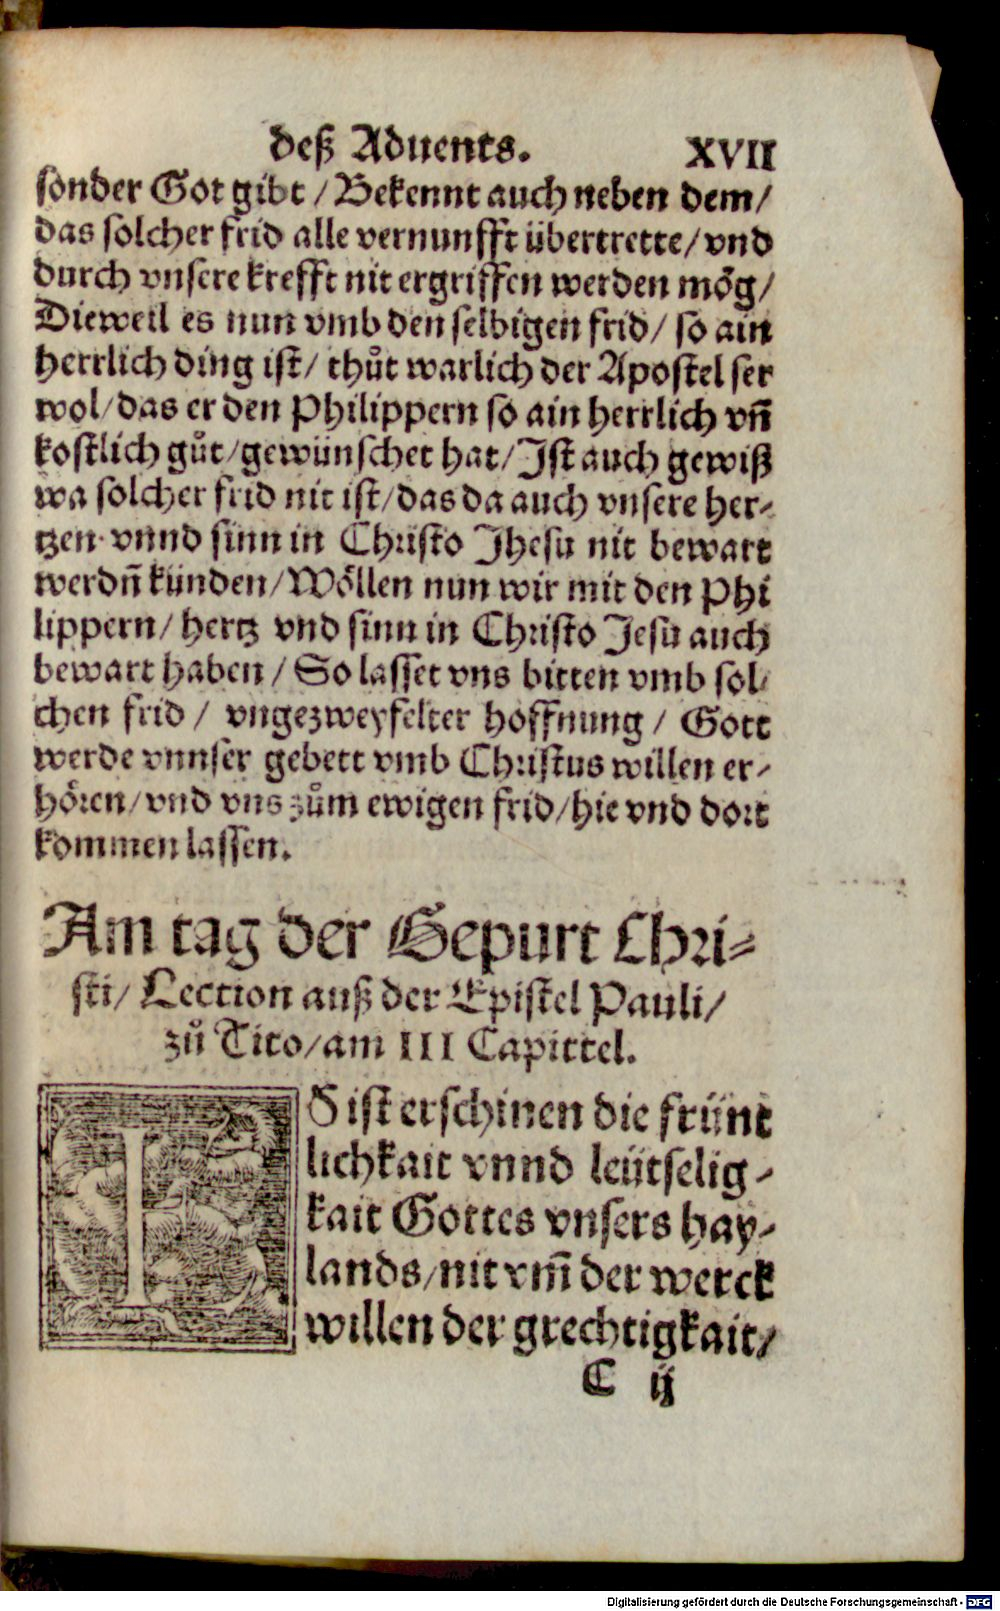 deß Aduents. XVII
sonder Got gibt / Bekennt auch neben dem /
das solcher frid alle vernunfft übertrette / vnd
durch vnsere krefft nit ergriffen werden mög /
Dieweil es nun vmb den selbigen frid / so ain
herrlich ding ist / thůt warlich der Apostel ser
wol / das er den Philippern so ain herrlich vñ
kostlich gůt / gewünschet hat / Ist auch gewiß
wa solcher frid nit ist / das da auch vnsere her-
tzen vnnd sinn in Christo Jhesu nit bewart
werdñ künden / Wöllen nun wir mit den Phi
lippern / hertz vnd sinn in Christo Jesu auch
bewart haben / So lasset vns bitten vmb sol-
chen frid / vngezweyfelter hoffnung / Gott
werde vnnser gebett vmb Christus willen er-
hören / vnd vns zům ewigen frid / hie vnd dort
kommen lassen.
Am tag der Gepurt Chri-
sti / Lection auß der Epistel Pauli /
zů Tito / am III Capittel.
ES ist erschinen die frünt
lichkait vnnd leütselig-
kait Gottes vnsers hay-
lands / nit vm̃ der werck
willen der grechtigkait /
C ij
Digitalisierung gefördert durch die Deutsche Forschungsgemeinschaft - DFG